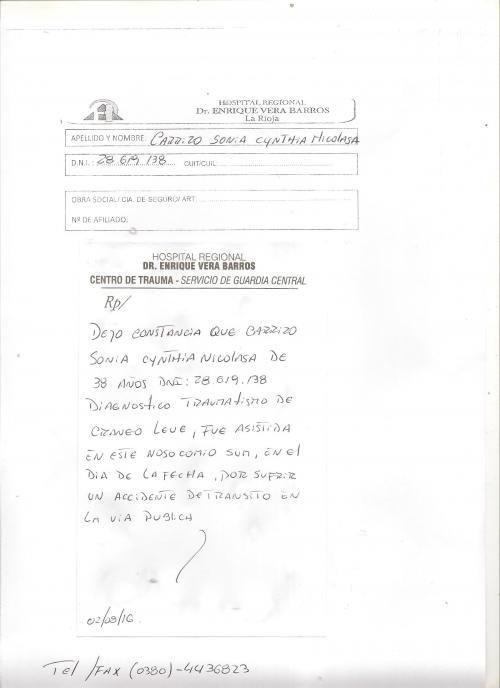 HOSPITAL REGIONAL
Dr. ENRIQUE VERA BARROS
La Rioja
APELLIDO Y NOMBRE: CARRIZO SONIA CYNTHIA NICOLASA
D.N.I. : 28.619.138 CUIT/CUIL:
OBRA SOCIAL/ CIA. DE SEGURO/ ART:
Nº DE AFILIADO:
HOSPITAL REGIONAL
DR. ENRIQUE VERA BARROS
CENTRO DE TRAUMA - SERVICIO DE GUARDIA CENTRAL
Rp/
DEJO CONSTANCIA QUE CARRIZO
SONIA CYNTHIA NICOLASA DE
38 AÑOS DNI: 28.619.138
DIAGNOSTICO TRAUMATISMO DE
CRANEO LEVE, FUE ASISTIDA
EN ESTE NOSOCOMIO SUM, EN EL
DIA DE LA FECHA, POR SUFRIR
UN ACCIDENTE DE TRANSITO EN
LA VIA PUBLICA
02/08/16.
Tel /FAX (0380)-4436823